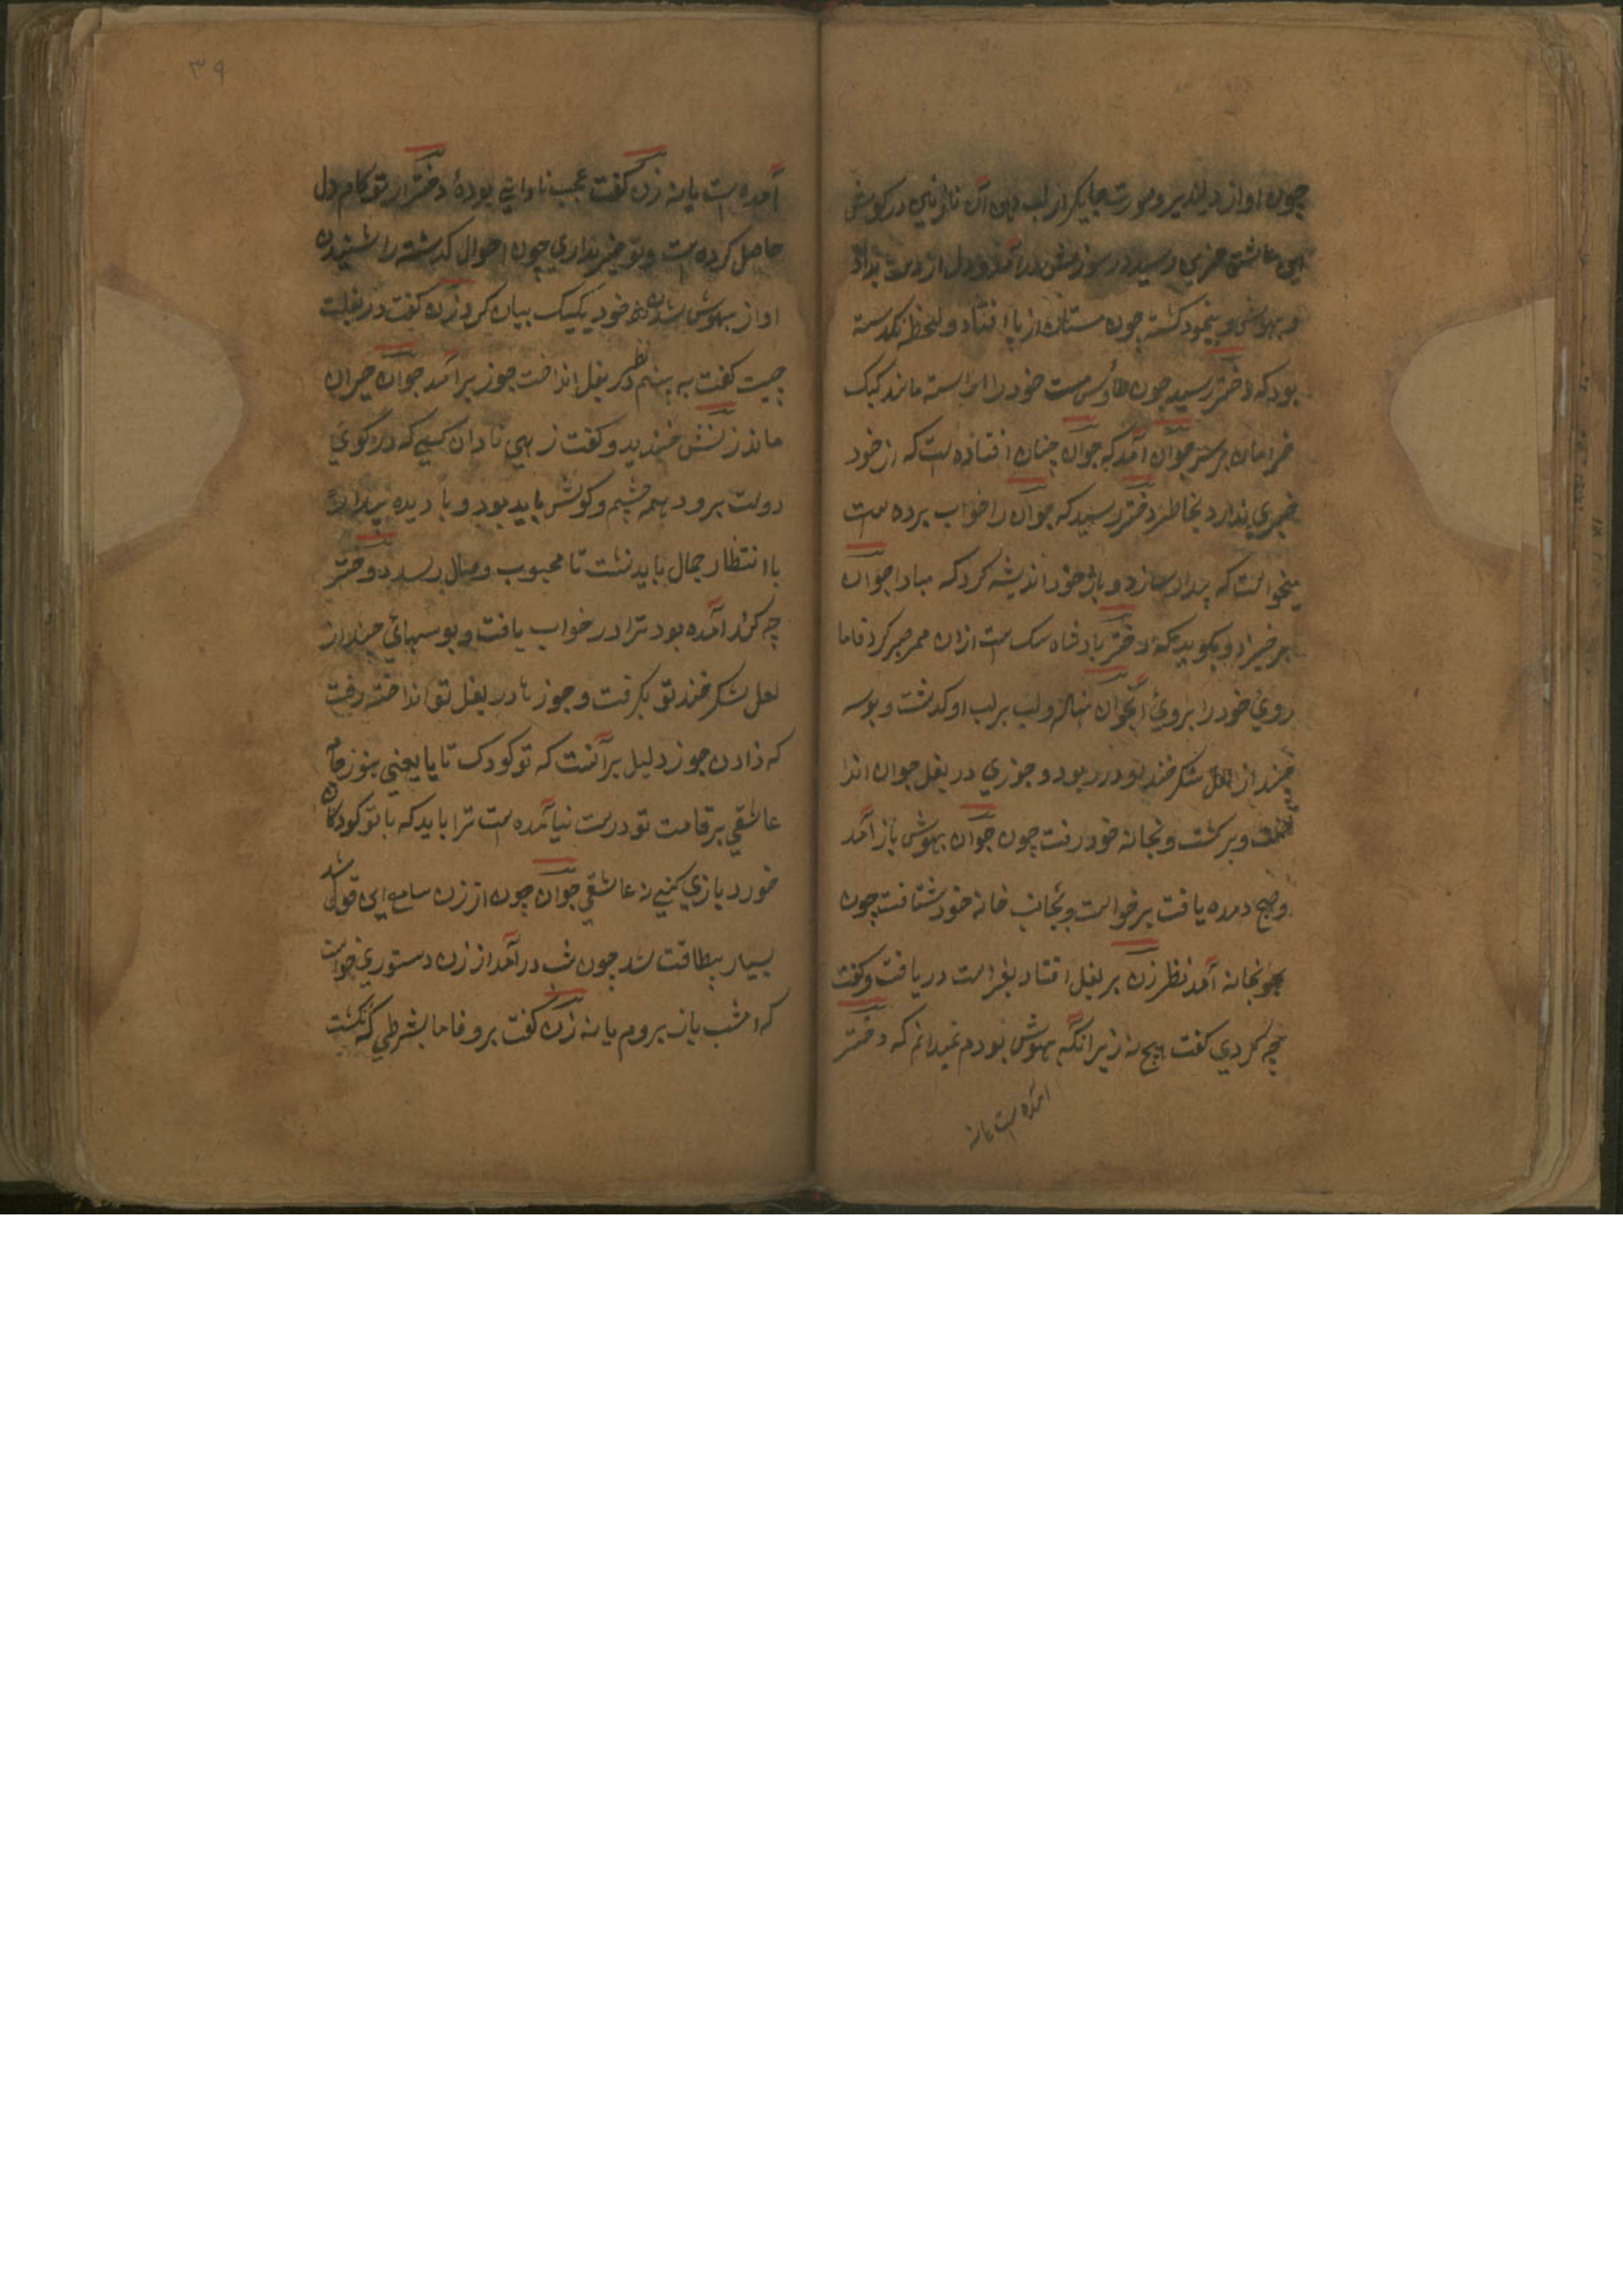 چون اواز دلپذیر و صورت جایگیر از لب دهن آن نازنین در کوش
این عاشق حزین رسید در سوزش در آمد و دل از دست بداد
و بیهوش و بیخود کشته چون مستان از پا افتاد و لحظه نکدسته
بود که دختر رسید چون طاوس مست خود را اراسته مانند کبک
خرامان بر سر جوان آمد که جوان چنان افتاده است که از خود
خبری ندارد بخاطر دختر رسید که جوان را خواب برده است
میخواست که بیدار سازد و باز خود اندیشه کرد که مبادا جوان
برخیزد و بکوید که دختر بادشاه سک است ازان ممر صبر کرد فاما
روی خود را بروی آنجوان نهاد و لب بر لب او کذشت و بوسه
چند از لعل شکر خند او در ربود و جوزی در بغل جوان اندا
خت و برکشت و بخانه خود رفت چون جوان بهوش باز آمد
و صبح دمده یافت برخواست و بجانب خانه خود شتافت چون
بخانه آمد نظر زن بر بغل افتاد بفراست دریافت و کفت
چه کردی کفت هیچ نه زیرا که بیهوش بودم نمیدانم که دختر
امده است یا نه
۳۹
آمده است یا نه زن کفت عجب نادانی بودهٔ دختر از تو کام دل
حاصل کرده است و تو خبر نداری چون احوال کذشته را شنیدن
اواز بیهوش شدن خود یکیک بیان کرد زن کفت در بغلت
چیست کفت به بینم نظر در بغل انداخت جوز بر آمد جوان حیران
ماند زنش خندید و کفت زهی نادان کسی که در کوی
دوست برود همه چشم و کوش باید بود و با دیده بیدار
با انتظار جمال باید نشست تا محبوب وصال رسد دختر
چه کند آمده بود ترا در خواب یافت و بوسهای چند از
لعل شکر خند تو بکرفت و جوز ها در بغل تو انداخته رفت
که دادن جوز دلیل بر آنست که تو کودک تا یا یعنی هنوز جامه
عاشقی بر قامت تو درست نیآمده است ترا باید که با تو کودکان
خورد بازی کنی نه عاشقی جوان چون از زن سامع این قول شد
بسیار بیطاقت شد چون شب در آمد از زن دستوری خواست
که امشب باز بروم یا نه زن کفت برو فاما بشرطی که